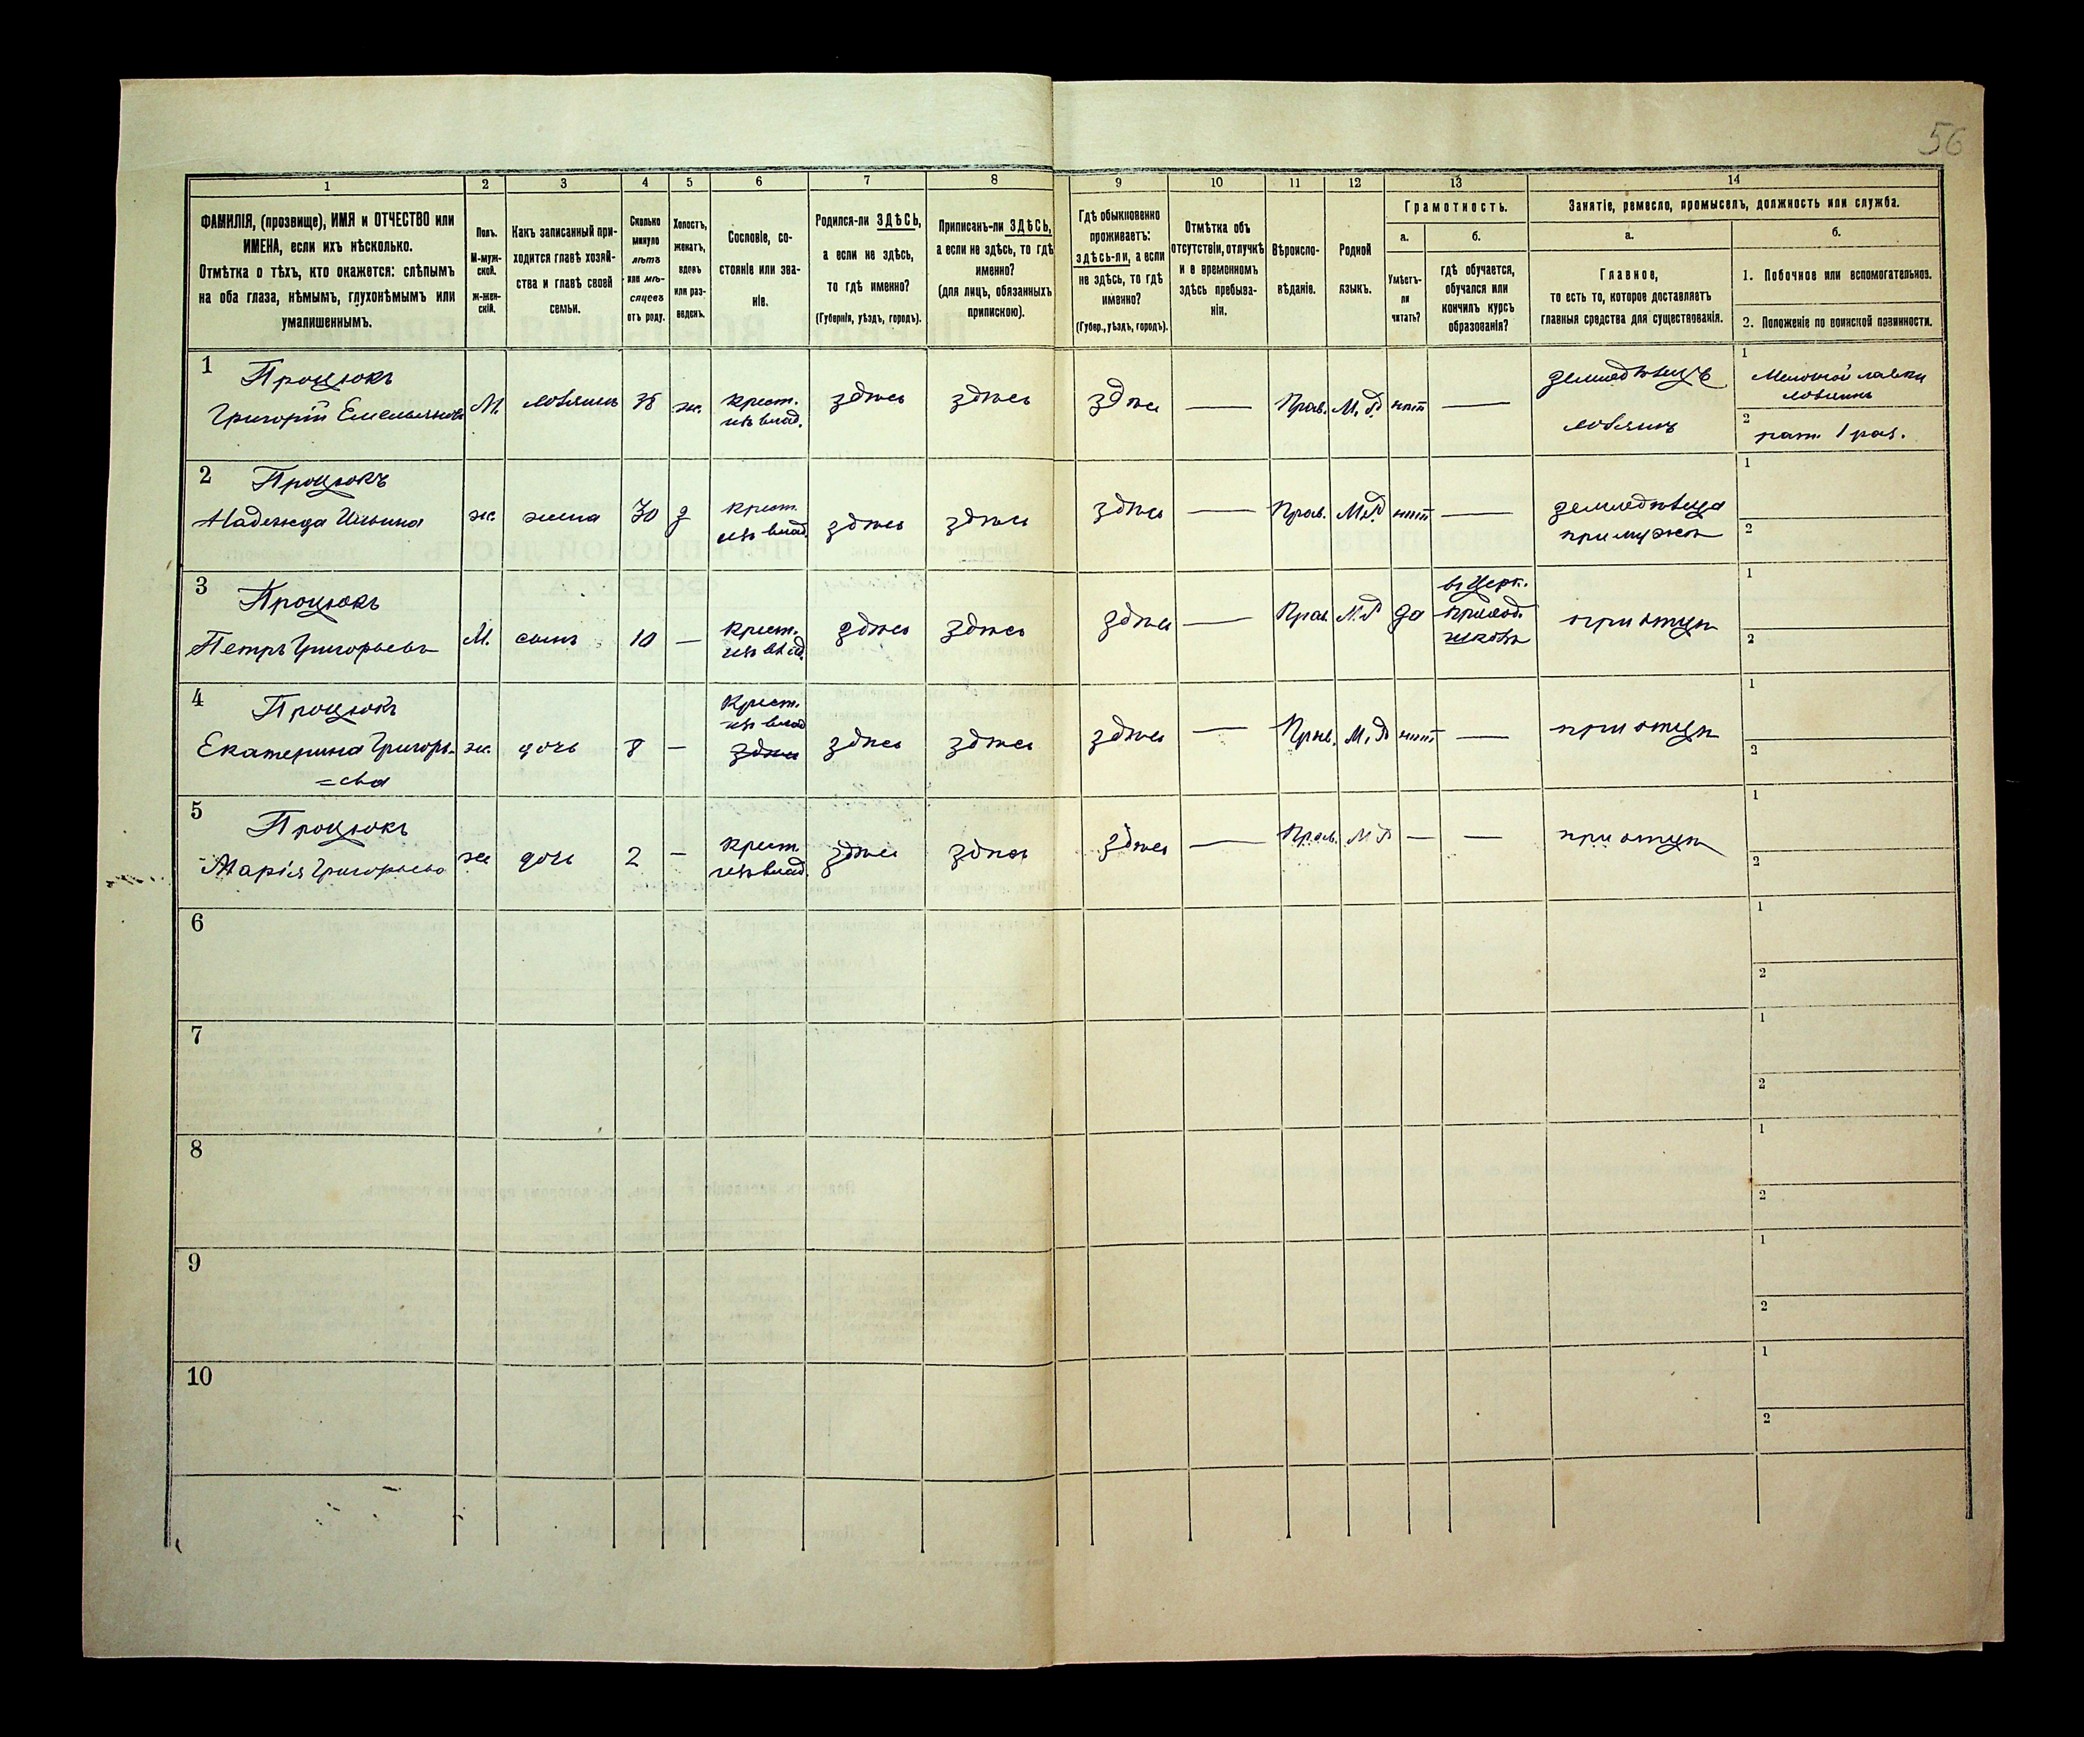 56
1 2 3 4 5 6 7 8 9 10 11 12 13 14
ФАМИЛІЯ, (прозвище), ИМЯ и ОТЧЕСТВО или
ИМЕНА, если ихъ нѣсколько.
Отмѣтка о тѣхъ, кто окажется: слѣпымъ
на оба глаза, нѣмымъ, глухонѣмымъ или
умалишеннымъ.
Полъ.
М-муж-
ской.
ж-жен-
скій.
Какъ записанный при-
ходится главѣ хозяй-
ства и главѣ своей
семьи.
Сколько
минуло
лѣтъ
или мѣ-
сяцевъ
отъ роду.
Холостъ,
женатъ,
вдовъ
или раз-
веденъ.
Сословіе, со-
стояніе или зва-
ніе.
Родился-ли ЗДѢСЬ,
а если не здѣсь,
то гдѣ именно?
(Губернія, уѣздъ, городъ).
Приписанъ-ли ЗДѢСЬ,
а если не здѣсь, то гдѣ
именно?
(для лицъ, обязанныхъ
припискою).
Гдѣ обыкновенно
проживаетъ:
здѣсь-ли, а если
не здѣсь, то гдѣ
именно?
(Губер., уѣздъ, городъ).
Отмѣтка объ
отсутствіи, отлучкѣ
и о временномъ
здѣсь пребыва-
ніи.
Вѣроиспо-
вѣданіе.
Родной
языкъ.
Грамотность.
а.
Умѣетъ-
ли
читать?
б.
гдѣ обучается,
обучался или
кончилъ курсъ
образованія?
Занятіе, ремесло, промыселъ, должность или служба.
а.
Главное,
то есть то, которое доставляетъ
главныя средства для существованія.
б.
1. Побочное или вспомогательное.
2. Положеніе по воинской повинности.
1 Процюкъ
Григорій Емельяновъ М. хозяинъ ж. крест.
изъ влад. здѣсь здѣсь здѣсь — Прав. М. Р. нѣтъ — земледѣлецъ
хозяинъ
1 Мелочной лавки
хозяинъ
2 рат. 1 раз.
2 Процюкъ
Надежда Ильина ж. жена 30 з крест.
изъ влад. здѣсь здѣсь здѣсь — Прав. М. Р. нѣтъ — земледѣлица
при мужѣ
1
2
3 Процюкъ
Петръ Григорьевъ М. сынъ 10 — крест.
изъ влад. здѣсь здѣсь здѣсь — Прав. М. Р да въ Церк.
приход.
школѣ при отцѣ
1
2
4 Процюкъ
Екатерина Григорь-
=ева ж. дочь 8 — Крест.
изъ влад
здѣсь здѣсь здѣсь здѣсь — Прав. М. Р нѣтъ — при отцѣ
1
2
5 Процюкъ
Марія Григорьева ж дочь 2 — крест
изъ влад. здѣсь здѣсь здѣсь — Прав. М Р — — при отцѣ
1
2
6
1
2
7
1
2
8
1
2
9
1
2
10
1
2